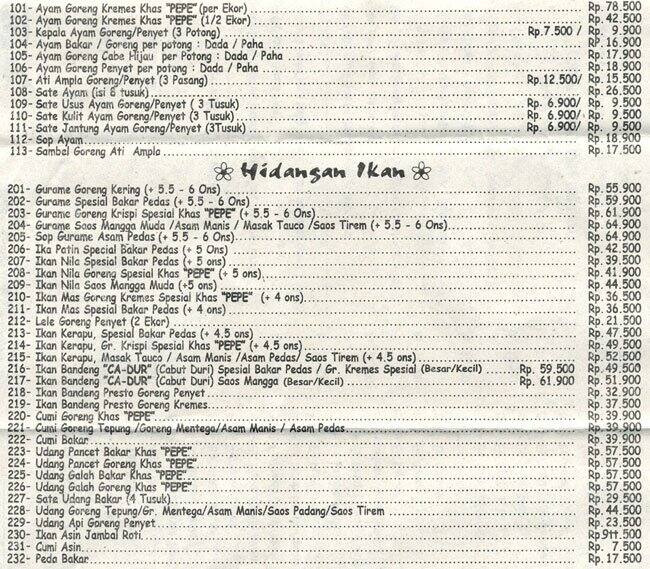 101- Ayam Goreng Kremes Khas "PEPE" (per Ekor) Rp. 78.500
102- Ayam Goreng Kremes Khas "PEPE" (1/2 Ekor) Rp. 42.500
103- Kepala Ayam Goreng/Penyet (3 Potong) Rp.7.500 / Rp. 9.500
104- Ayam Bakar / Goreng per potong : Dada / Paha Rp. 16.900
105- Ayam Goreng Cabe Hijau per Potong : Dada / Paha Rp. 17.900
106- Ayam Goreng Penyet per potong : Dada / Paha Rp. 18.900
107- Ati Ampla Goreng/Penyet (3 Pasang) Rp.12.500/ Rp. 15.500
108- Sate Ayam (isi 6 tusuk) Rp. 26.500
109- Sate Usus Ayam Goreng/Penyet ( 3 Tusuk) Rp. 6.900/ Rp. 9.500
110- Sate Kulit Ayam Goreng/Penyet ( 3 Tusuk) Rp. 6.900/ Rp. 9.500
111- Sate Jantung Ayam Goreng/Penyet (3Tusuk) Rp. 6.900/ Rp. 9.500
112- Sop Ayam Rp. 18.900
113- Sambal Goreng Ati Ampla Rp. 17.500
Hidangan Ikan
201- Gurame Goreng Kering (+ 5.5 - 6 Ons) Rp. 55.900
202- Gurame Spesial Bakar Pedas (+ 5.5 - 6 Ons) Rp. 59.900
203- Gurame Goreng Krispi Spesial Khas "PEPE" (+ 5.5 - 6 Ons) Rp. 61.900
204- Gurame Saos Mangga Muda /Asam Manis / Masak Tauco /Saos Tirem (+ 5.5 - 6 Ons) Rp. 64.900
205- Sop Gurame Asam Pedas (+ 5.5 - 6 Ons) Rp. 64.900
206- Ika Patin Special Bakar Pedas (+ 5 Ons) Rp. 42.500
207- Ikan Nila Spesial Bakar Pedas (+ 5 ons) Rp. 39.500
208- Ikan Nila Goreng Spesial Khas "PEPE" (+ 5 ons) Rp. 41.900
209- Ikan Nila Saos Mangga Muda (+5 ons) Rp. 44.500
210- Ikan Mas Goreng Kremes Spesial Khas "PEPE" (+ 4 ons) Rp. 36.500
211- Ikan Mas Spesial Bakar Pedas (+ 4 ons) Rp. 36.500
212- Lele Goreng Penyet (2 Ekor) Rp. 21.500
213- Ikan Kerapu, Spesial Bakar Pedas (+ 4.5 ons) Rp. 47.500
214- Ikan Kerapu, Gr. Krispi Spesial Khas "PEPE" (+ 4.5 ons) Rp. 49.500
215- Ikan Kerapu, Masak Tauco / Asam Manis /Asam Pedas/ Saos Tirem (+ 4.5 ons) Rp. 52.500
216- Ikan Bandeng "CA-DUR" (Cabut Duri) Spesial Bakar Pedas / Gr. Kremes Spesial (Besar/Kecil) Rp. 59.500 Rp. 49.500
217- Ikan Bandeng "CA-DUR" (Cabut Duri) Saos Mangga (Besar/Kecil) Rp. 61.900 Rp. 51.900
218- Ikan Bandeng Presto Goreng Penyet Rp. 32.900
219- Ikan Bandeng Presto Goreng Kremes Rp. 37.500
220- Cumi Goreng Khas "PEPE" Rp. 39.900
221- Cumi Goreng Tepung /Goreng Mentega/Asam Manis / Asam Pedas Rp. 39.900
222- Cumi Bakar Rp. 39.900
223- Udang Pancet Bakar Khas "PEPE" Rp. 57.500
224- Udang Pancet Goreng Khas "PEPE" Rp. 57.500
225- Udang Galah Bakar Khas "PEPE" Rp. 57.500
226- Udang Galah Goreng Khas "PEPE" Rp. 57.500
227- Sate Udang Bakar (4 Tusuk) Rp. 29.500
228- Udang Goreng Tepung/Gr. Mentega/Asam Manis/Saos Padang/Saos Tirem Rp. 44.500
229- Udang Api Goreng Penyet Rp. 23.500
230- Ikan Asin Jambal Roti
231- Cumi Asin Rp. 7.500
232- Peda Bakar Rp. 17.500